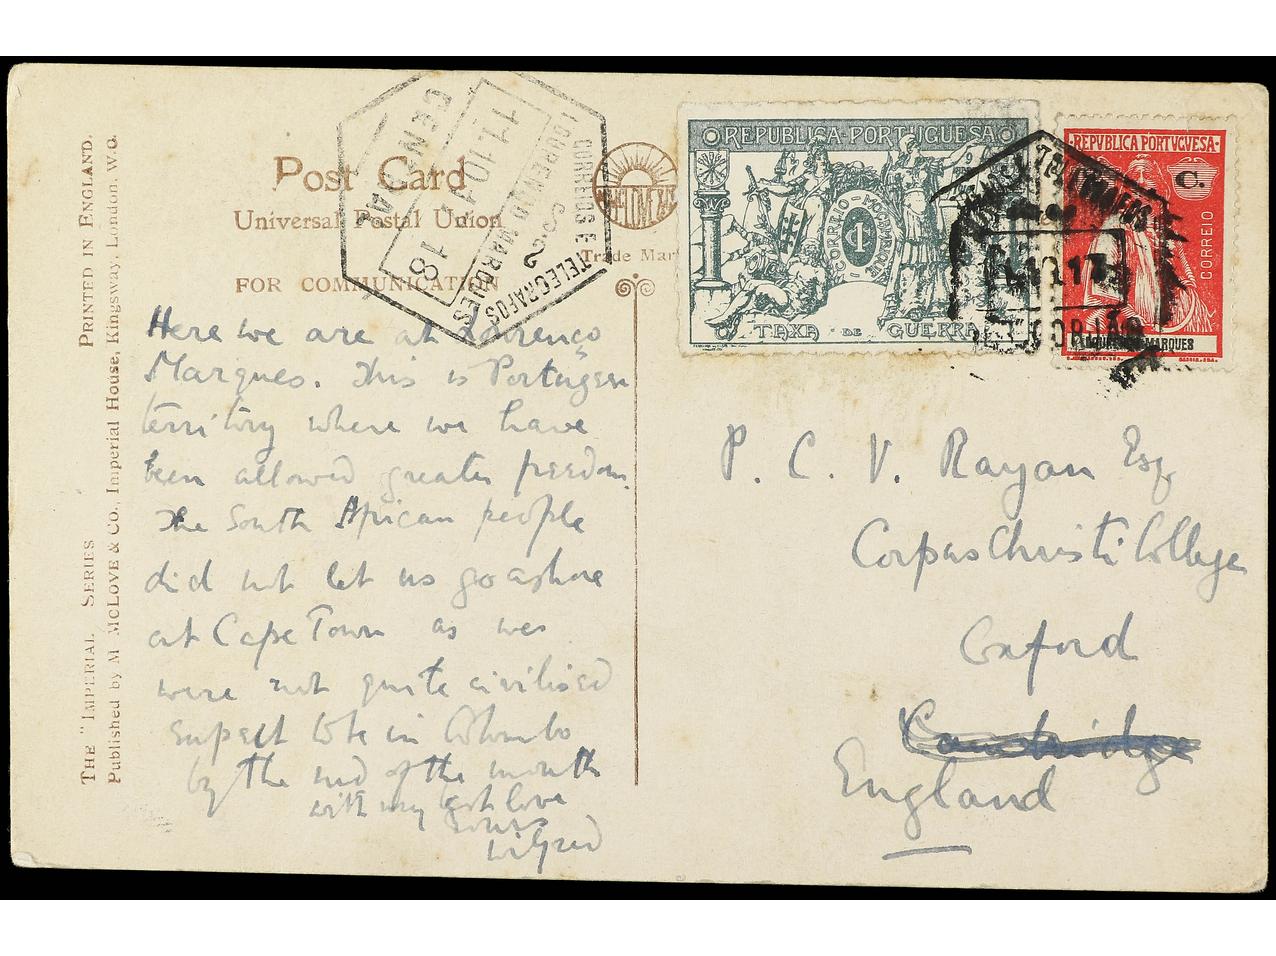 THE "IMPERIAL SERIES
PRINTED IN ENGLAND.
Published by M McLOVE & Co., Imperial House, Kingsway, London, W.C.
Post Card
Universal Postal Union
FOR COMMUNICATION
Trade Mar
CORREIOS E TELEGRAFOS
LOURENÇO MARQUES
CENTRAL
18
REPUBLICA PORTUGUESA
CORREIO MOÇAMBIQUE
1
TAXA DE GUERRA
REPVBLICA PORTVGVESA
C.
CORREIO
LOURENÇO MARQUES
Here we are at Lorenço
Marques. This is Portugese
territory where we have
been allowed greater freedom.
The South African people
did not let us go ashore
at Cape Town as we
were not quite civilised
Expect to be in Colombo
by the end of the month
with my best love
yours
Wilfred
P. C. V. Rayan Esq
Corpus Christi College
Oxford
Cambridge
England